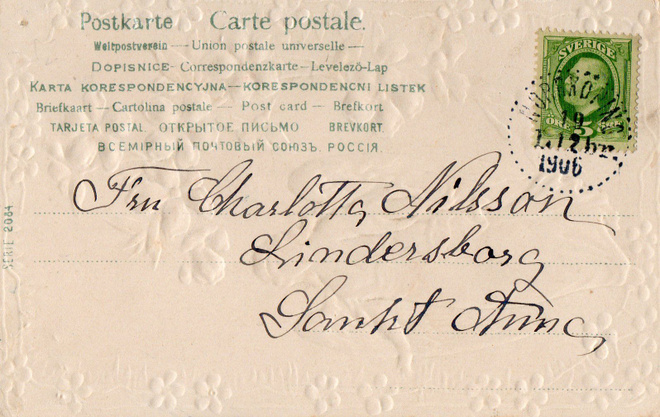 Postkarte Carte postale.
Weltpostverein — Union postale universelle —
DOPISNICE - Correspondenzkarte - Levelező-Lap
KARTA KORESPONDENCYJNA — KORESPONDENCNI LISTEK
Briefkaart — Cartolina postale — Post card — Brefkort
TARJETA POSTAL. ОТКРЫТОЕ ПИСЬМО BREVKORT.
ВСЕМІРНЫЙ ПОЧТОВЫЙ СОЮЗЪ. РОССІЯ.
SVERIGE
ÖRE 5
19
1906
Fru Charlotta Nilsson
Lindersborg
Sankt Anna
SERIE 2064